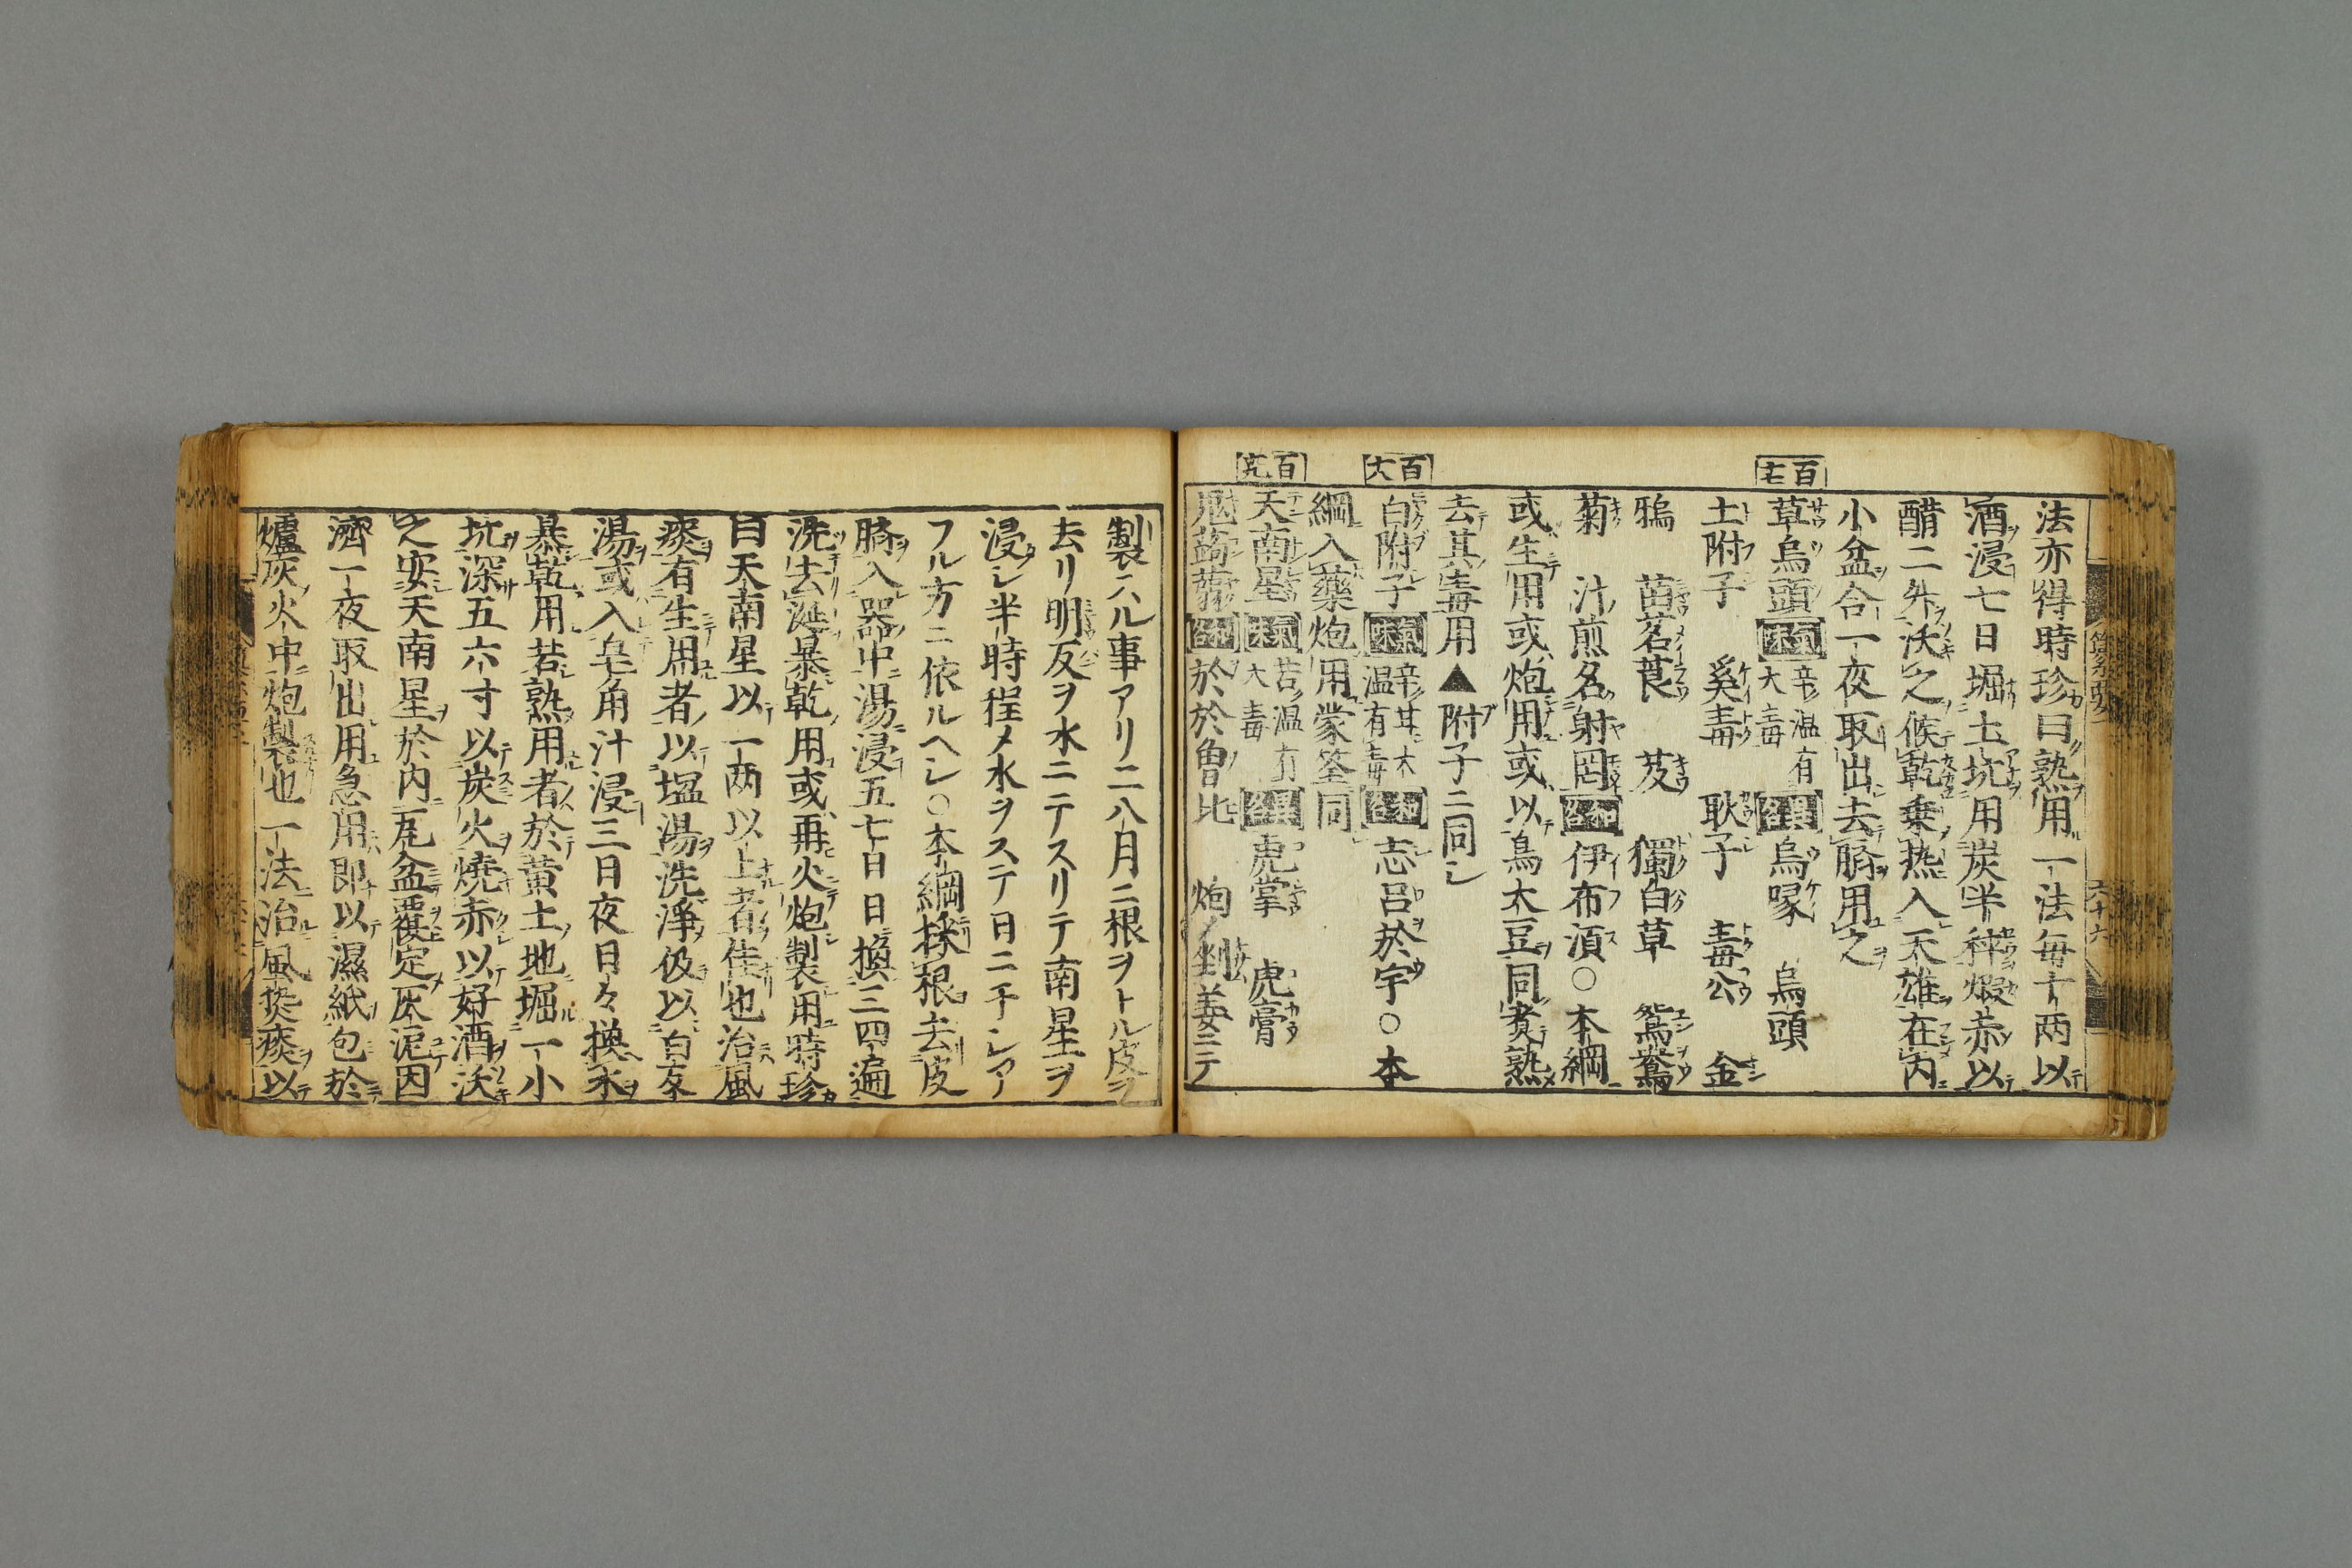 法亦得時珍曰熟用一法毎十两以
酒浸七日堀土坑用炭半秤煆赤以
醋二升沃之候乾乗热入天雄在内
小盆合一夜取出去臍用之
百七
草烏頭 氣味 辛温有大毒 異名 烏喙 烏頭
土附子 奚毒 耿子 毒公 金
鴉 苗名茛 芨 獨白草 鴛鴦
菊 汁煎名射罔 和名 伊布須〇本綱
或生用或炮用或以烏大豆同煮熟
去其毒用▲附子ニ同シ
百八
白附子 氣味 辛甘大温有毒 和名 志呂於宇〇本
綱入藥炮用蒙筌同
百九
天南星 氣味 苦温有大毒 異名 虎掌 虎膏
鬼蒟蒻 和名 於於魯比 炮ノ剉姜ニテ
製スル事アリ二八月ニ根ヲトル皮ヲ
去リ明反ヲ水ニテスリテ南星ヲ
浸シ半時程メ水ヲステ日ニ干シア
フル方ニ依ルヘシ〇本綱採根去皮
臍入器中湯浸五七日日換三四遍
洗去涎暴乾用或再火炮製用時珍
曰天南星以一两以上者佳也治風
痰有生用者以塩湯洗淨仮以白礬
湯或入皂角汁浸三日夜日々換水
暴乾用若熟用者於黄土地堀一小
坑深五六寸以炭火燒赤以好酒沃
之安天南星於内瓦盆覆定灰泥因
濟一夜取出用急用即以濕紙包於
爐灰火中炮製也一法治風热痰以